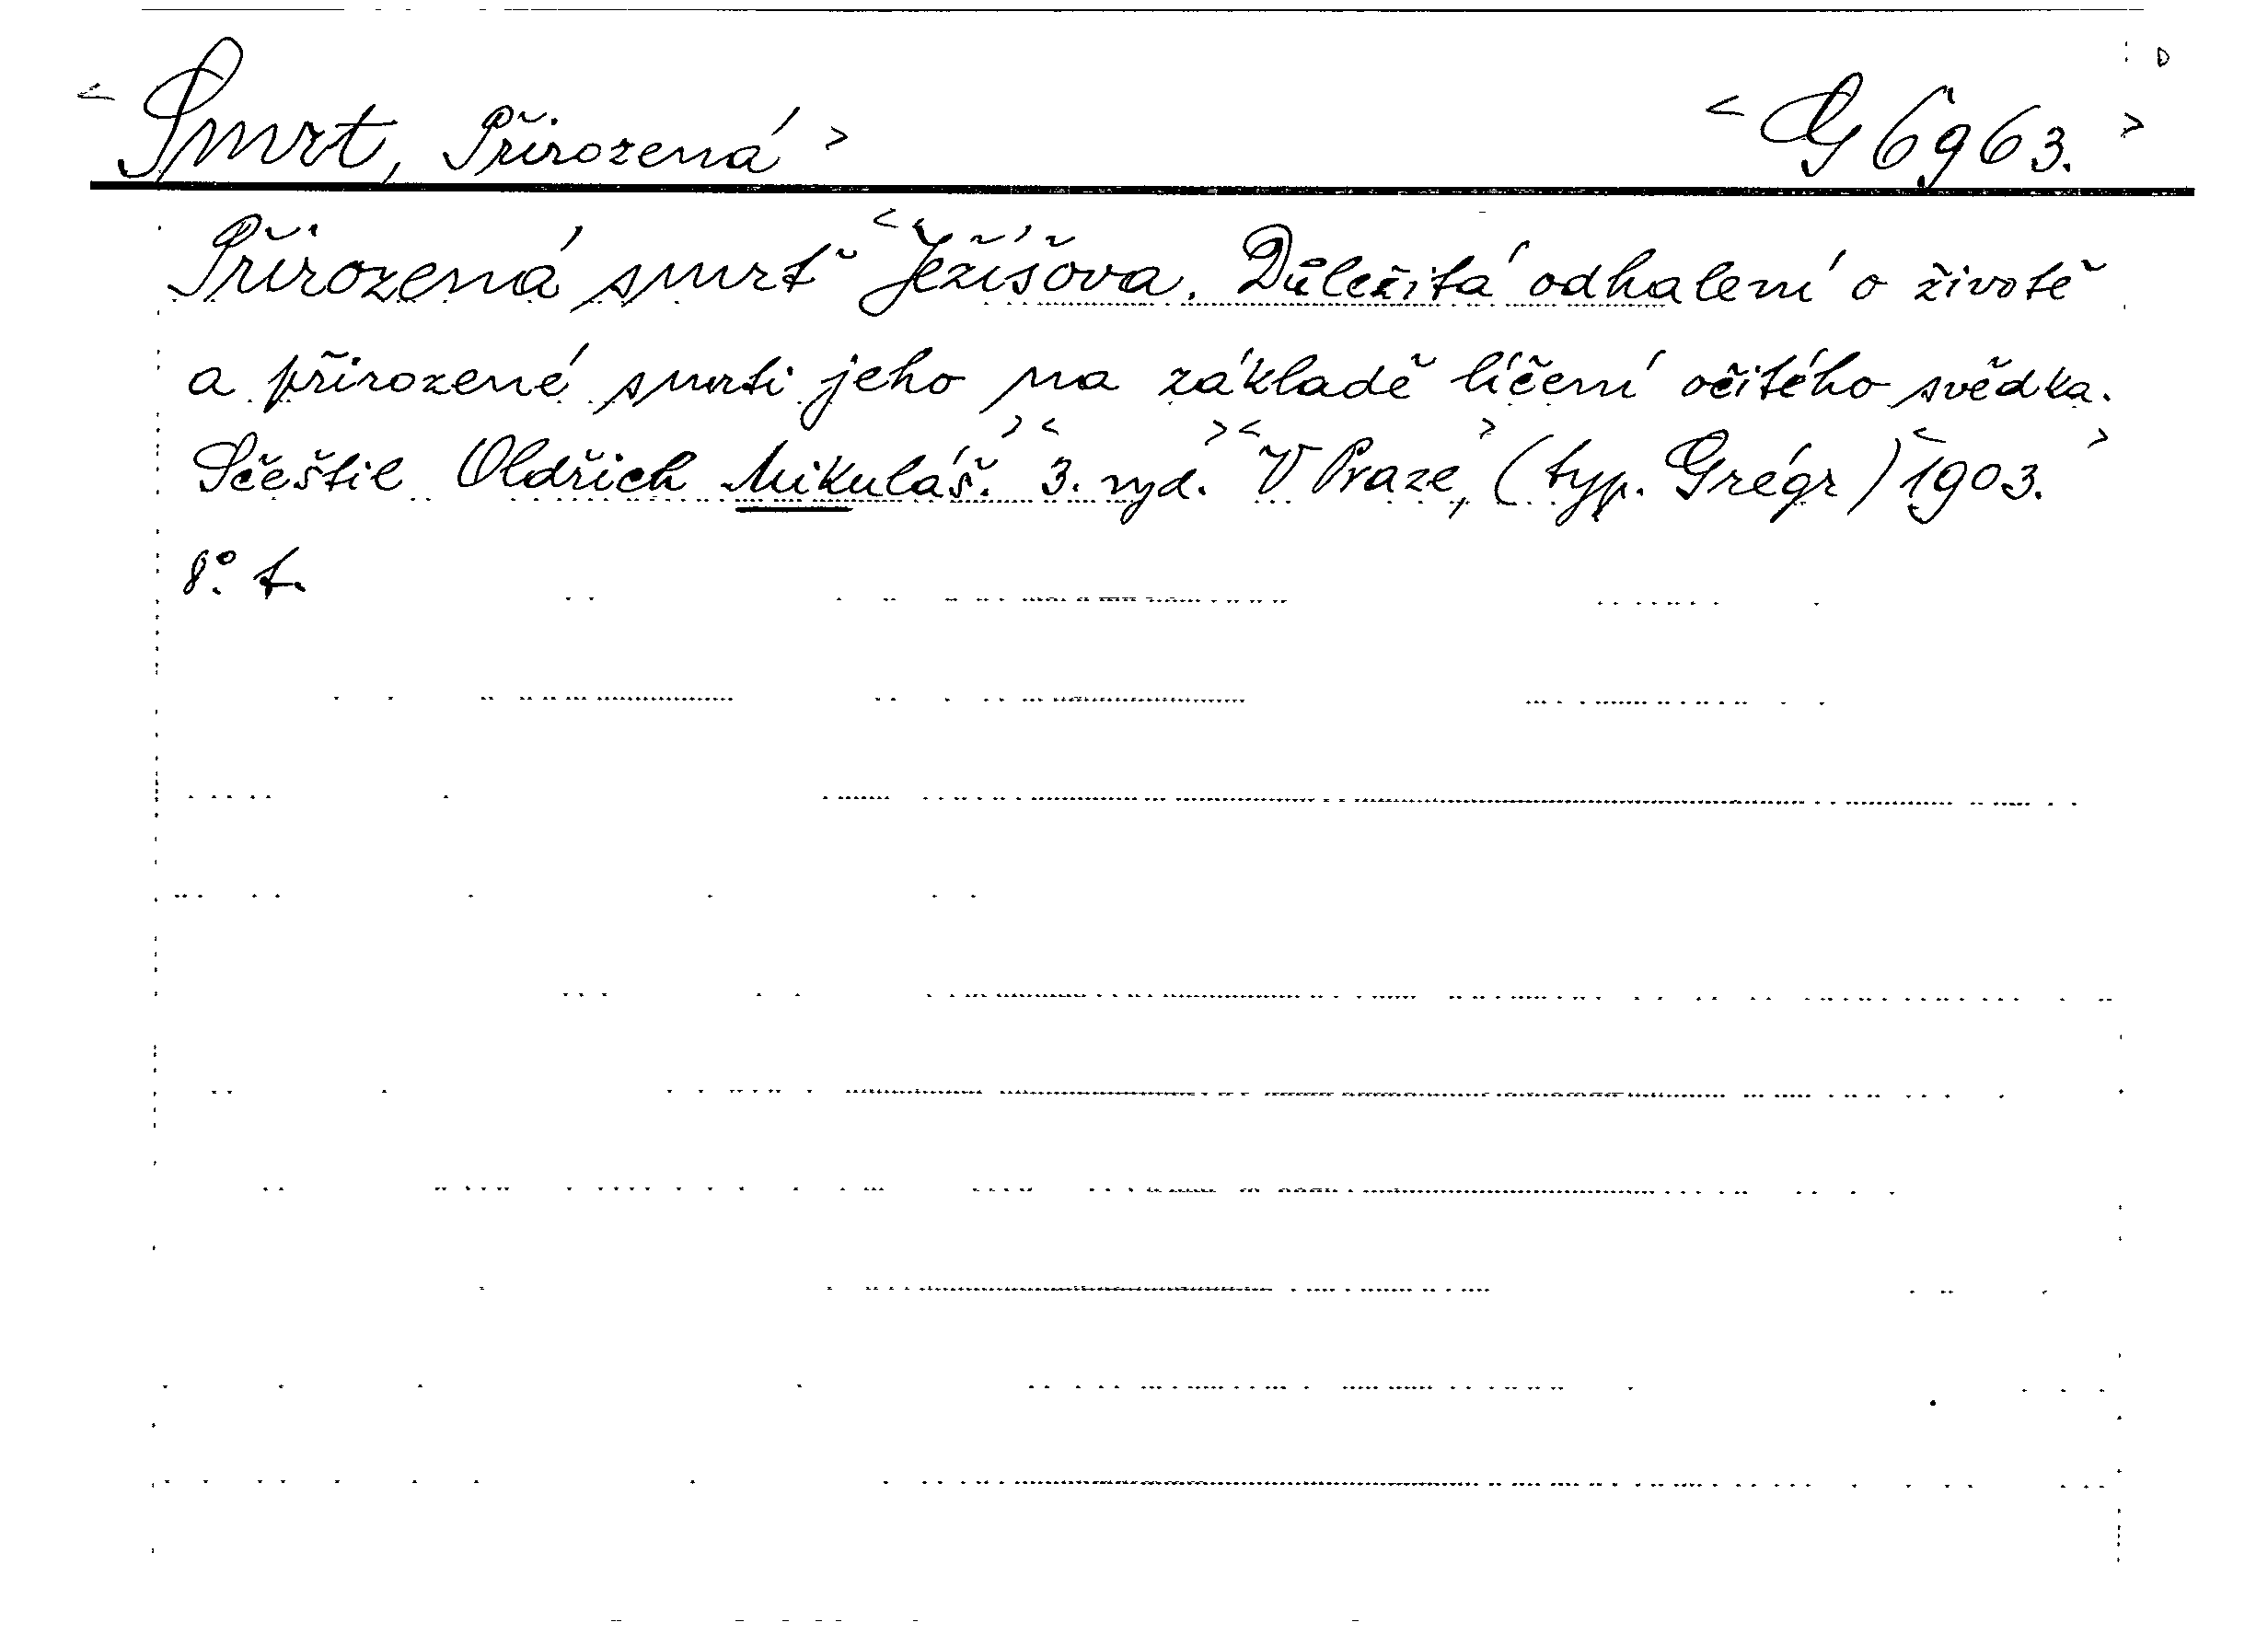 < Smrt, Přirozená > < G 6963. >
Přirozená smrt < Ježíšova. Důležitá odhalení o životě
a přirozené smrti jeho na základě líčení očitého svědka.
Sčeštil Oldřich Mikuláš. > < 3. vyd. > < V Praze, > (typ. Grégr) < 1903. >
8°. f.